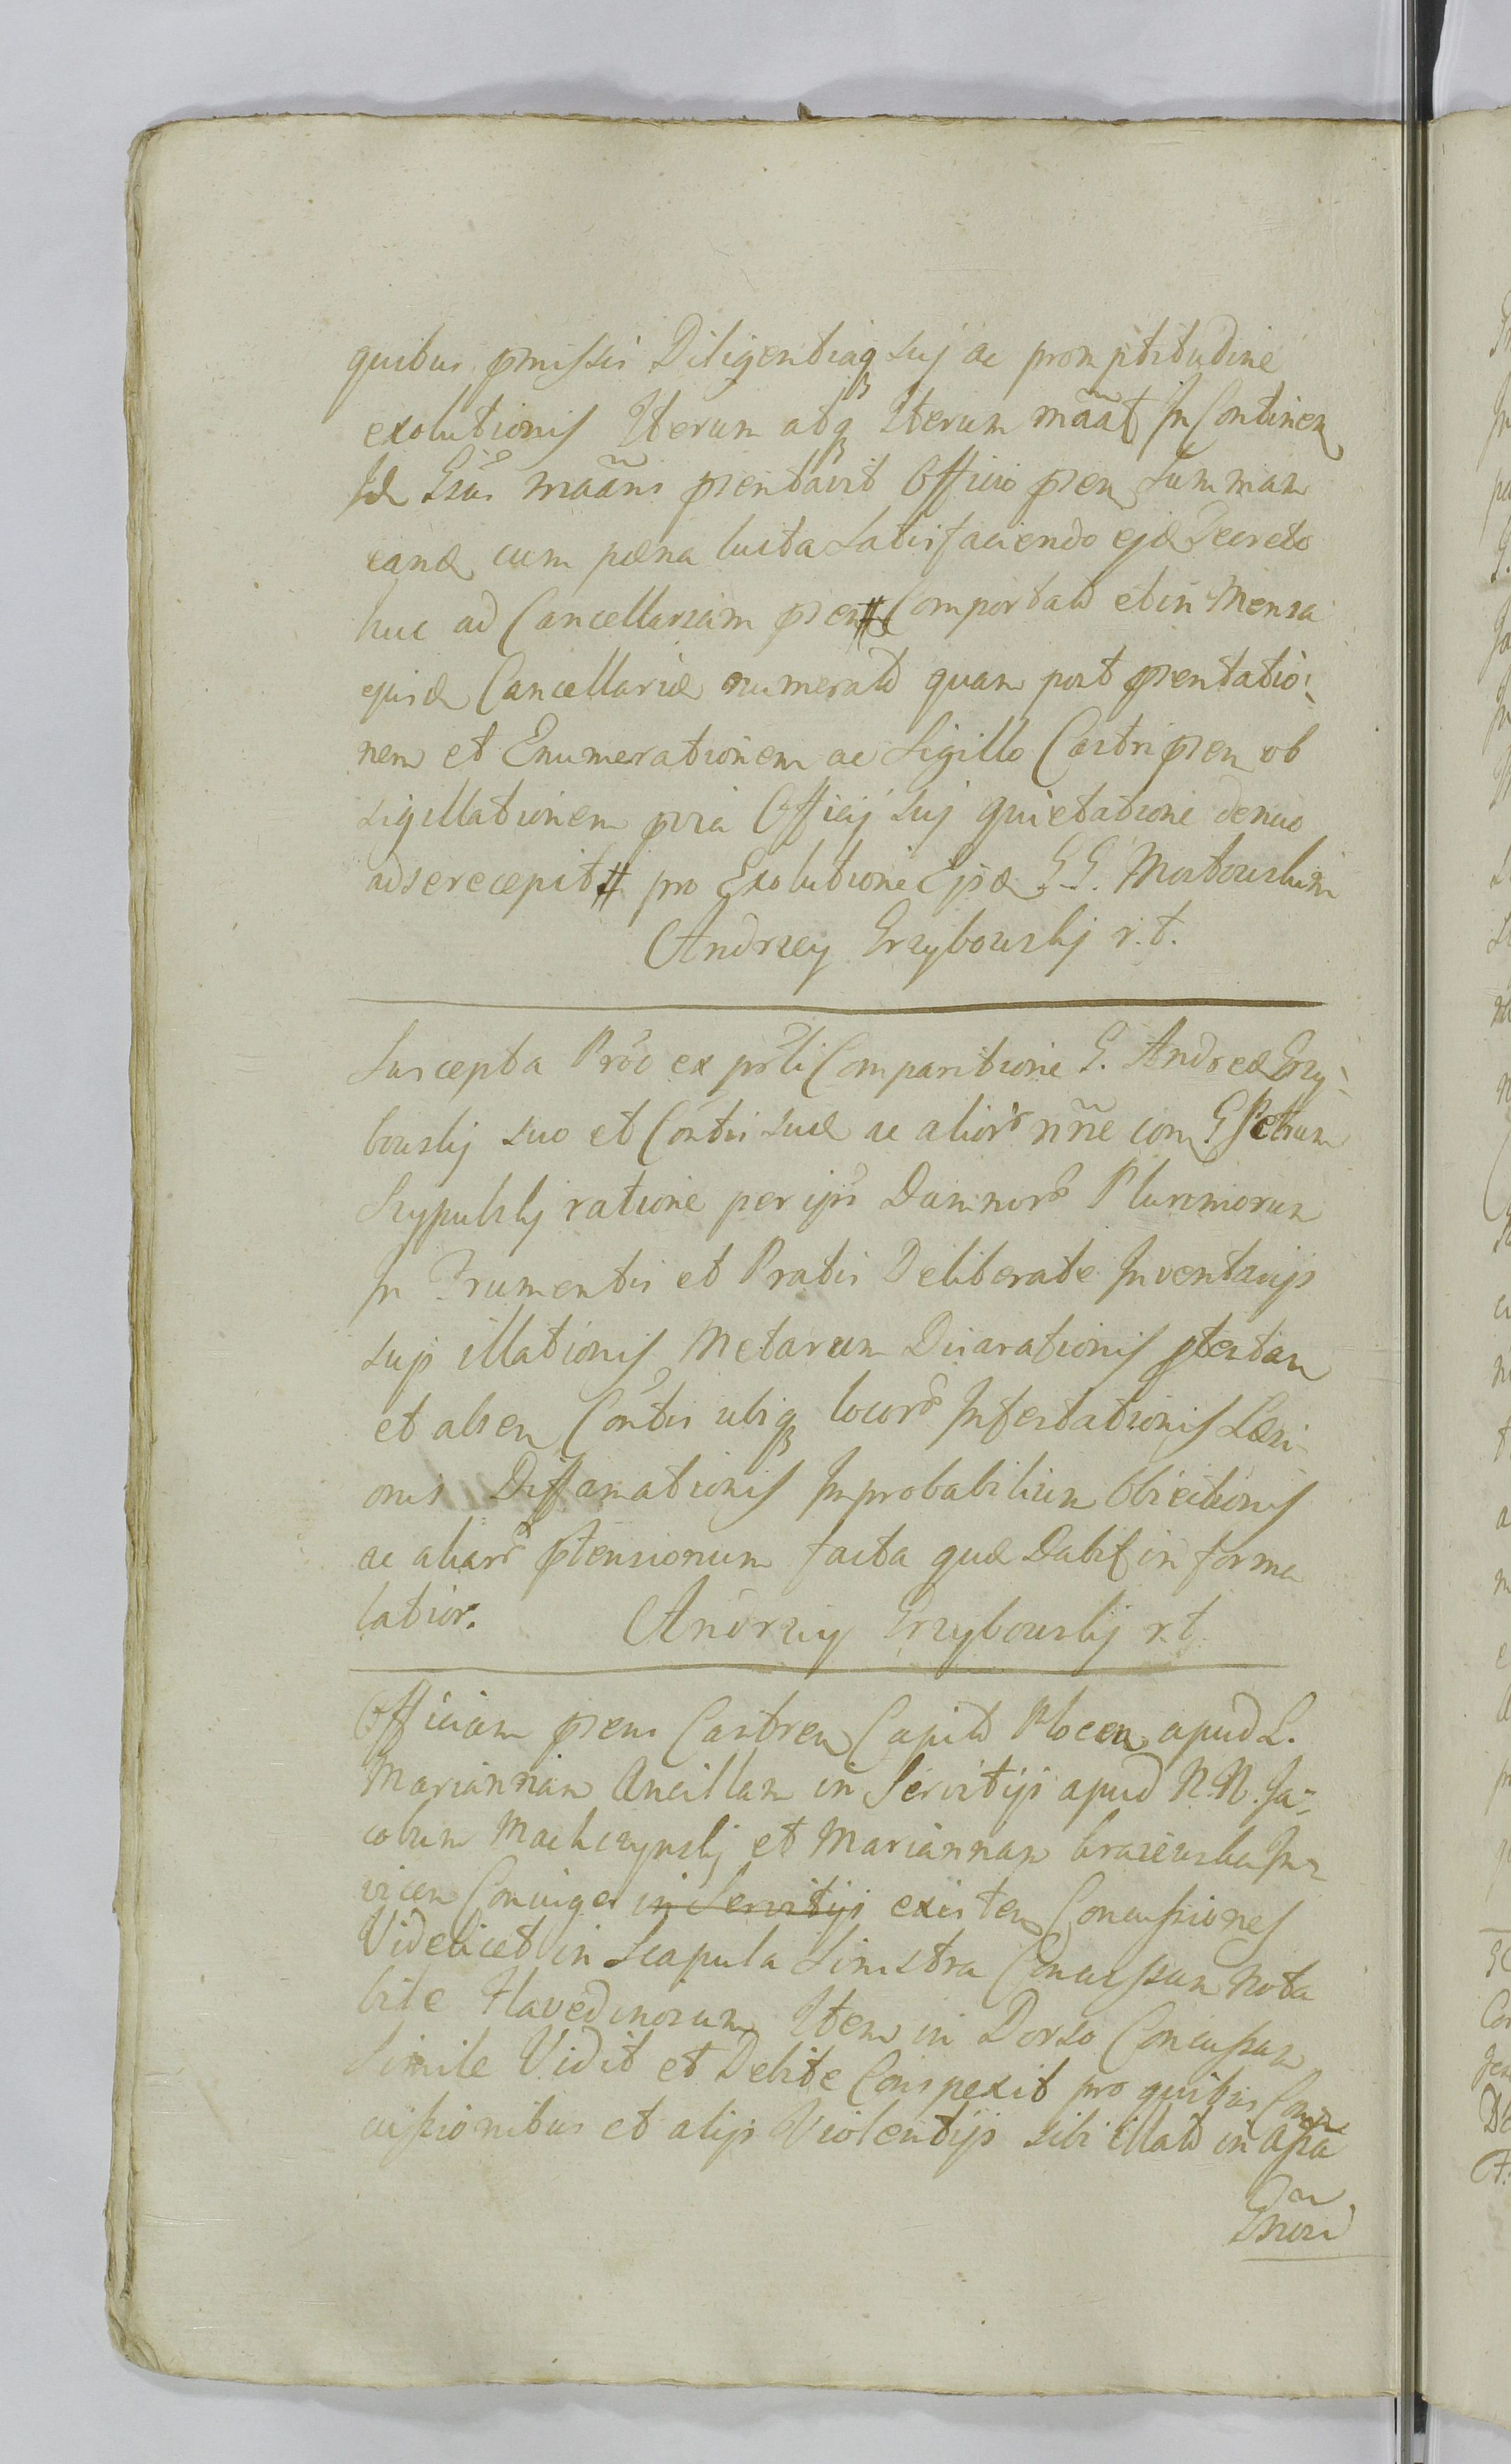 quibus pmissis Diligentiaq suj ac promptitudine
exolutionis Iterum atq Iterum mãat In Continen
Id Gsus mãans pſentavit Officio pſen Summam
eand cum pæna lucta Satisfaciendo ejd Decreto
huc ad Cancellariam pſen # Comportatd et in Mensa
ejusd Cancellariæ numeratd quam post pſentatio:
nem et Enumerationem ac Sigillo Castri pſen ob
sigillationem pvia Officij suj quietatione denuo
ad se recepit # pro Exolutione Ejsd G.G. Mostowskim
Andrzey Grzybowskj r.t.
Suscepta Pro̊o ex pſ̊li Comparitione G. Andreæ Grzy:
bowskj suo et Cõrtis suæ ac alior nñe con G Petrum
Szypulskj ratione per ips Damnor Plurimorum
In Frumentis et Pratis Deliberate Inventarijs
sujs illationis Metarum Disarationis ptextan
et absen Cõrtis ubiq locor Infestationis Læsi
onis Diffamationis Improbabilium Obiectionis
ac aliar ptensionum facta quæ Dabit in forma
latior. Andrzey Grzybowskj r.t.
Officium pſens Castren Capitd Plocen apud L.
Mariannam Ancillam in Servitijs apud N.N. Ja:
cobum Machczynskj et Mariannam In:
vicem Coniuges in Servitijs existen Concussiones
Videlicet in Scapula Sinistra Concussum Nota
bile Flavedinosum Item in Dorso Concussum
Simile Vidit et Debite Conspexit pro quibus Con
cussionibus et alijs Violentijs sibi illatd in Assa